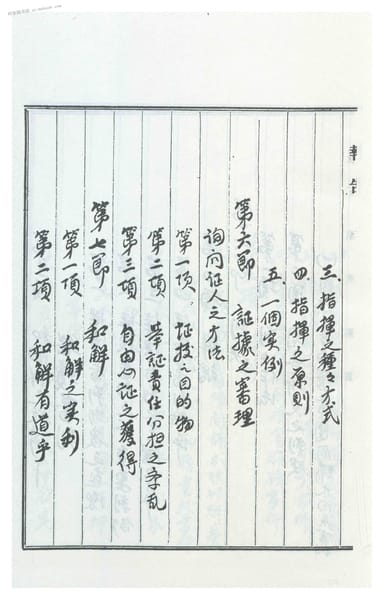 報告
三、指揮之種々方式
四、指揮之原則
五、一個実例
第六節 証據之審理
詢问证人之方法
第一項 证授之目的物
第二項 举証責任分担之紊乱
第三項 自由心证之獲得
第七節 和解
第一項 和解之实利
第二項 和解有道乎